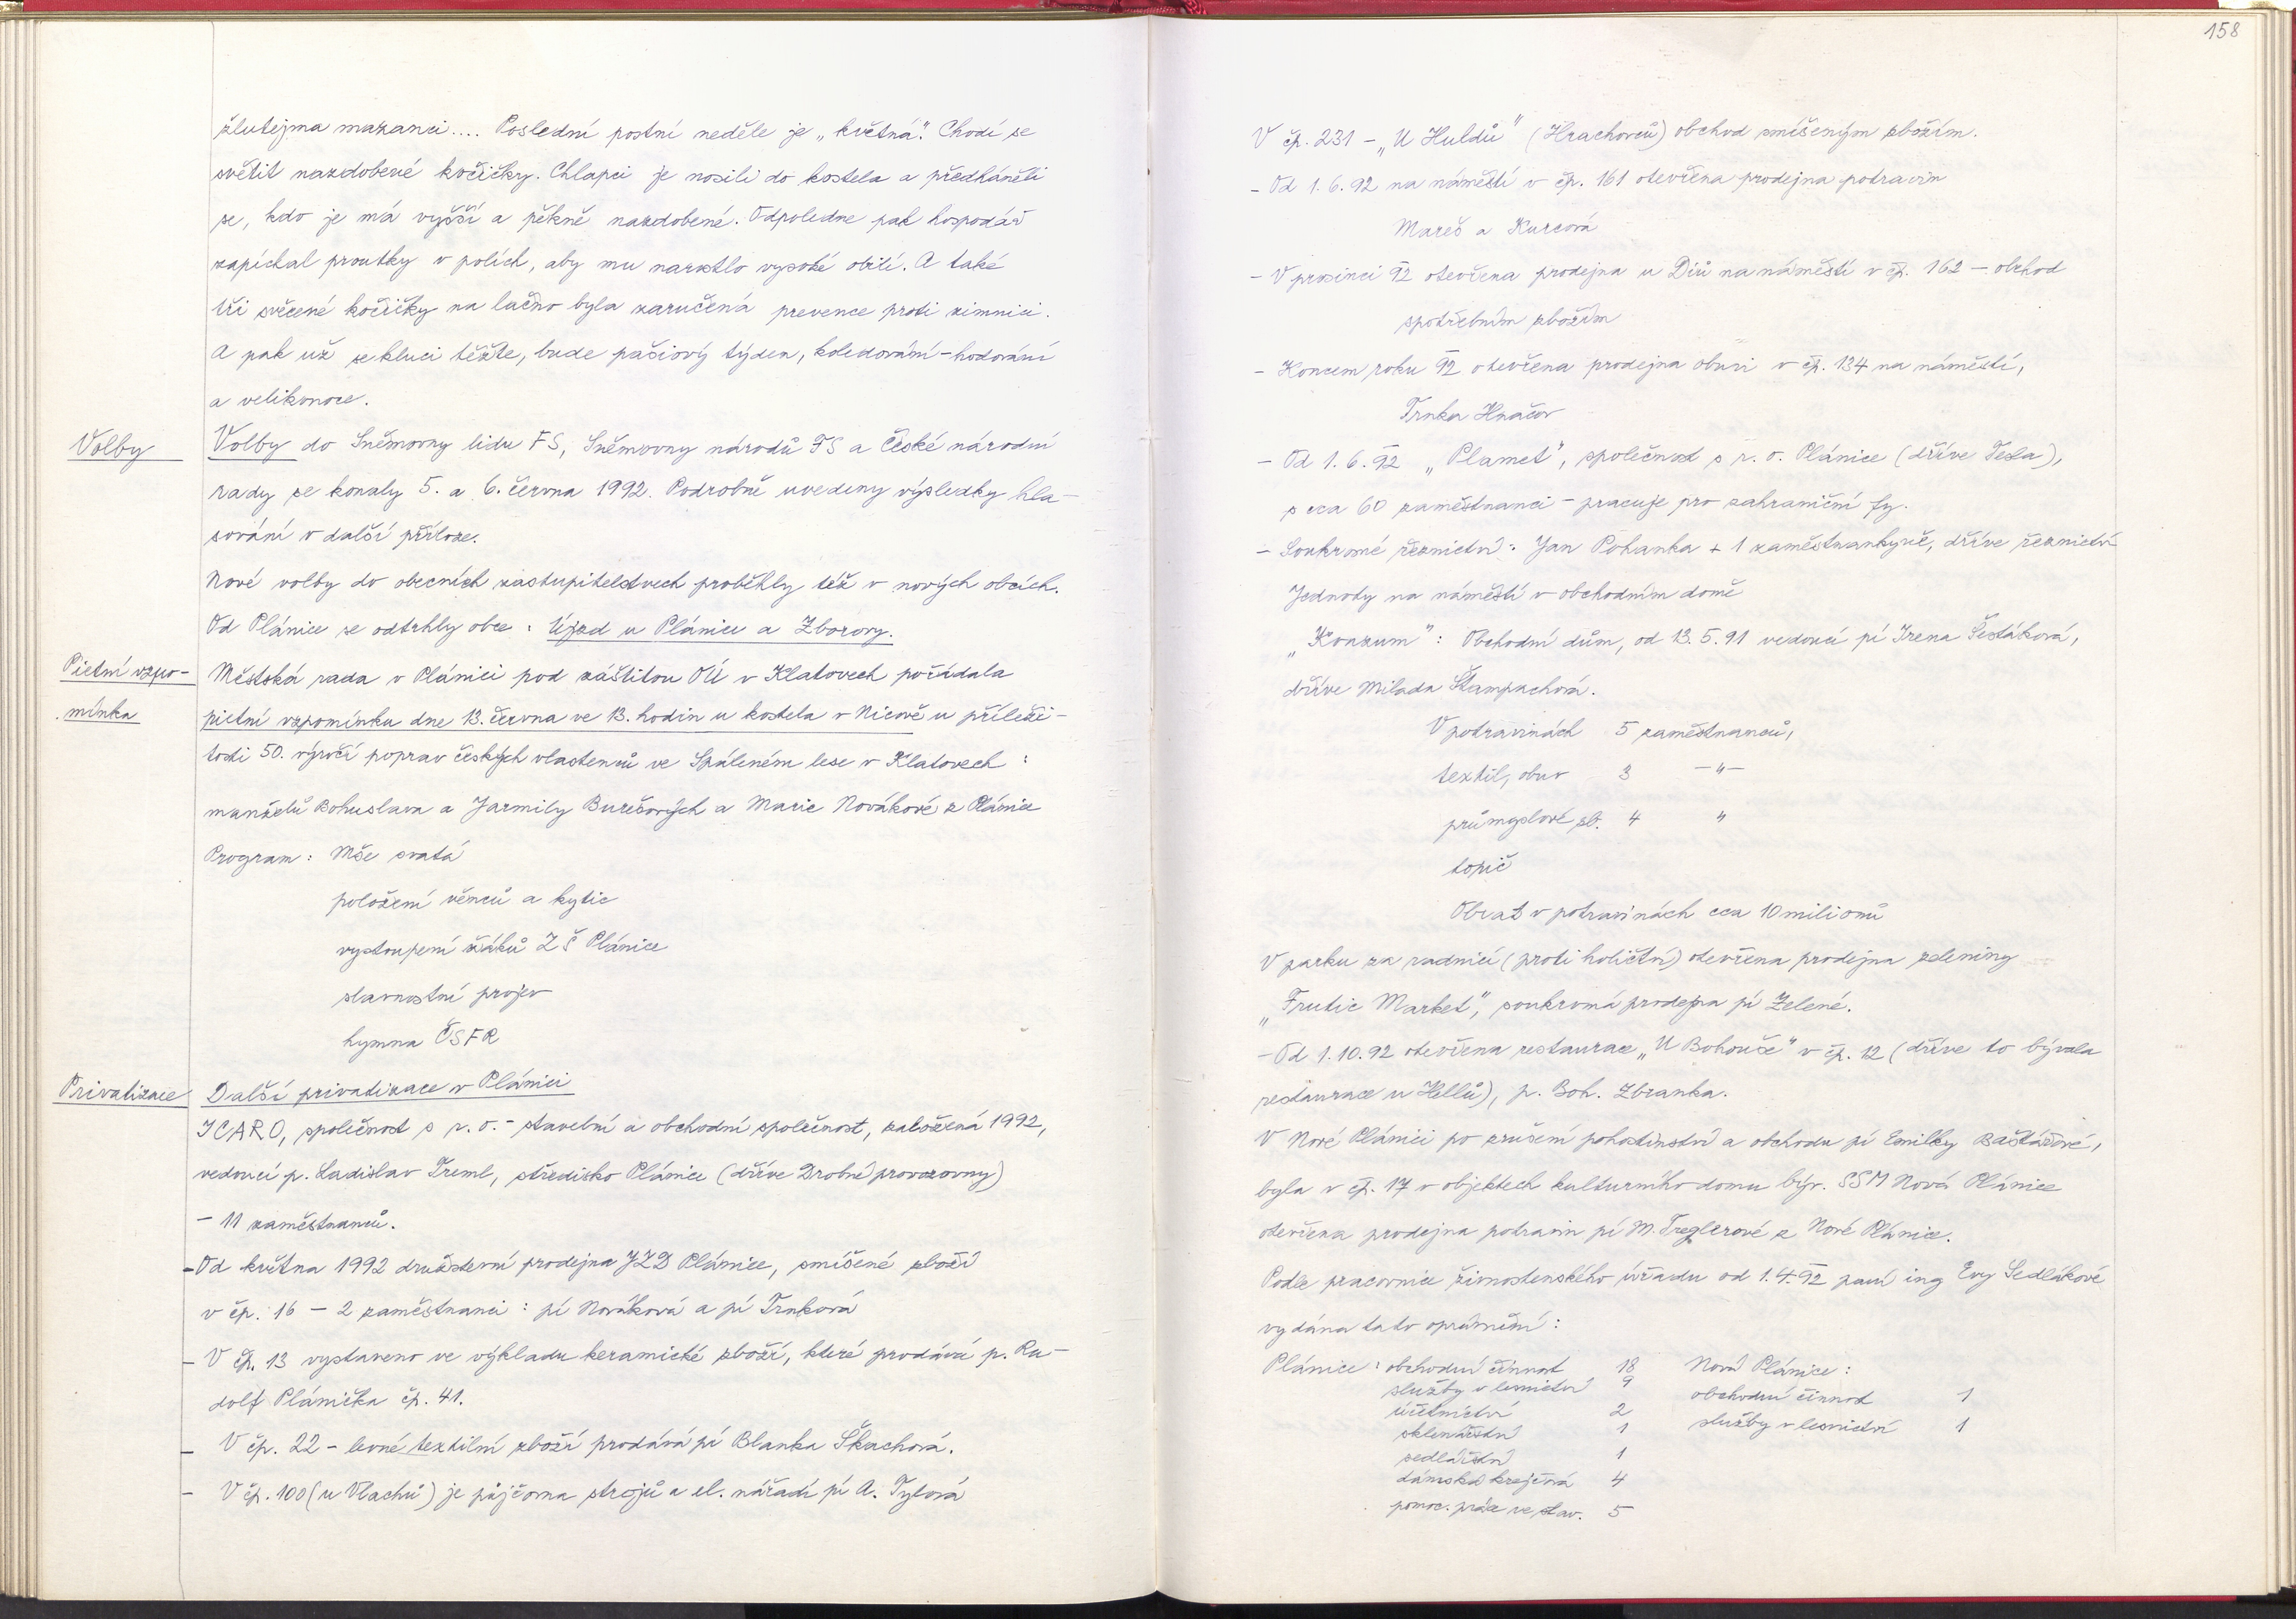 žlutejma mazanci.... Poslední postní neděle je „květná". Chodí se
světit nazdobené kočičky. Chlapci je nosili do kostela a předháněli
se, kdo je má vyšší a pěkně nazdobené. Odpoledne pak hospodář
zapíchal proutky v polích, aby mu narostlo vysoké obilí. A také
tři svěcené kočičky na lačno byla zaručená prevence proti zimnici.
A pak už se kluci těšte, bude pašiový týden, koledování - hodování
a velikonoce.
Volby
Volby do Sněmovny lidu FS, Sněmovny národů FS a České národní
rady se konaly 5. a 6. června 1992. Podrobně uvedeny výsledky hla-
sování v další příloze.
Nové volby do obecních zastupitelstvech proběhly též v nových obcích.
Od Plánice se odtrhly obce: Újezd u Plánice a Zborovy.
Pietní vzpo-
mínka
Městská rada v Plánici pod záštitou OÚ v Klatovech pořádala
pietní vzpomínku dne 13. června ve 13. hodin u kostela v Nicově u příleži-
tosti 50. výročí poprav českých vlastenců ve Spáleném lese v Klatovech:
manželů Bohuslava a Jarmily Burešových a Marie Novákové z Plánice
Program: Mše svatá
položení věnců a kytic
vystoupení žáků ZŠ Plánice
slavnostní projev
hymna ČSFR
Privatizace
Další privatizace v Plánici
ICARO, společnost s r. o. - stavební a obchodní společnost, založená 1992,
vedoucí p. Ladislav Treml, středisko Plánice (dříve Drobné provozovny)
- 11 zaměstnanců.
- Od května 1992 družstevní prodejna JZD Plánice, smíšené zboží
v čp. 16 - 2 zaměstnanci: pí Nováková a pí Trnková
- V čp. 13 vystaveno ve výkladu keramické zboží, které prodává p. Ru-
dolf Plánička čp. 41.
- V čp. 22 - levné textilní zboží prodává pí Blanka Škachová.
- V čp. 100 (u Vlachů) je půjčovna strojů a el. nářadí pí A. Tylová
158
V čp. 231 - „U Huldů" (Hrachovců) obchod smíšeným zbožím.
- Od 1. 6. 92 na náměstí v čp. 161 otevřena prodejna potravin
Mareš a Kurcová
- V prosinci 92 otevřena prodejna u Dirů na náměstí v čp. 162 - obchod
spotřebním zbožím
- Koncem roku 92 otevřena prodejna obuvi v čp. 134 na náměstí,
Trnka Hnačov
- Od 1. 6. 92 „Plamet", společnost s r. o. Plánice (dříve Tesla),
s cca 60 zaměstnanci - pracuje pro zahraniční fy.
- Soukromé řeznictví: Jan Pohanka + 1 zaměstnankyně, dříve řeznictví
Jednoty na náměstí v obchodním domě
„Konzum": Obchodní dům, od 13. 5. 91 vedoucí pí Irena Šestáková,
dříve Milada Štampachová.
V potravinách 5 zaměstnanců,
textil, obuv 3 -"-
průmyslové zb. 4 "
topič
Obrat v potravinách cca 10 milionů
V parku za radnicí (proti holičství) otevřena prodejna zeleniny
„Frutic Market", soukromá prodejna pí Zelené.
- Od 1. 10. 92 otevřena restaurace „U Bohouše" v čp. 12 (dříve to bývala
restaurace u Hellů), p. Boh. Zbranka.
V Nové Plánici po zrušení pohostinství a obchodu pí Emilky Baštářové,
byla v čp. 17 v objektech kulturního domu býv. SSM Nová Plánice
otevřena prodejna potravin pí M. Treglerové z Nové Plánice.
Podle pracovnice živnostenského úřadu od 1. 4. 92 paní ing Evy Sedlákové
vydána tato oprávnění:
Plánice: obchodní činnost 18 Nová Plánice:
služby v lesnictví 9 obchodní činnost 1
účetnictví 2 služby v lesnictví 1
sklenářství 1
sedlářství 1
dámská krejčová 4
pomoc. práce ve stav. 5